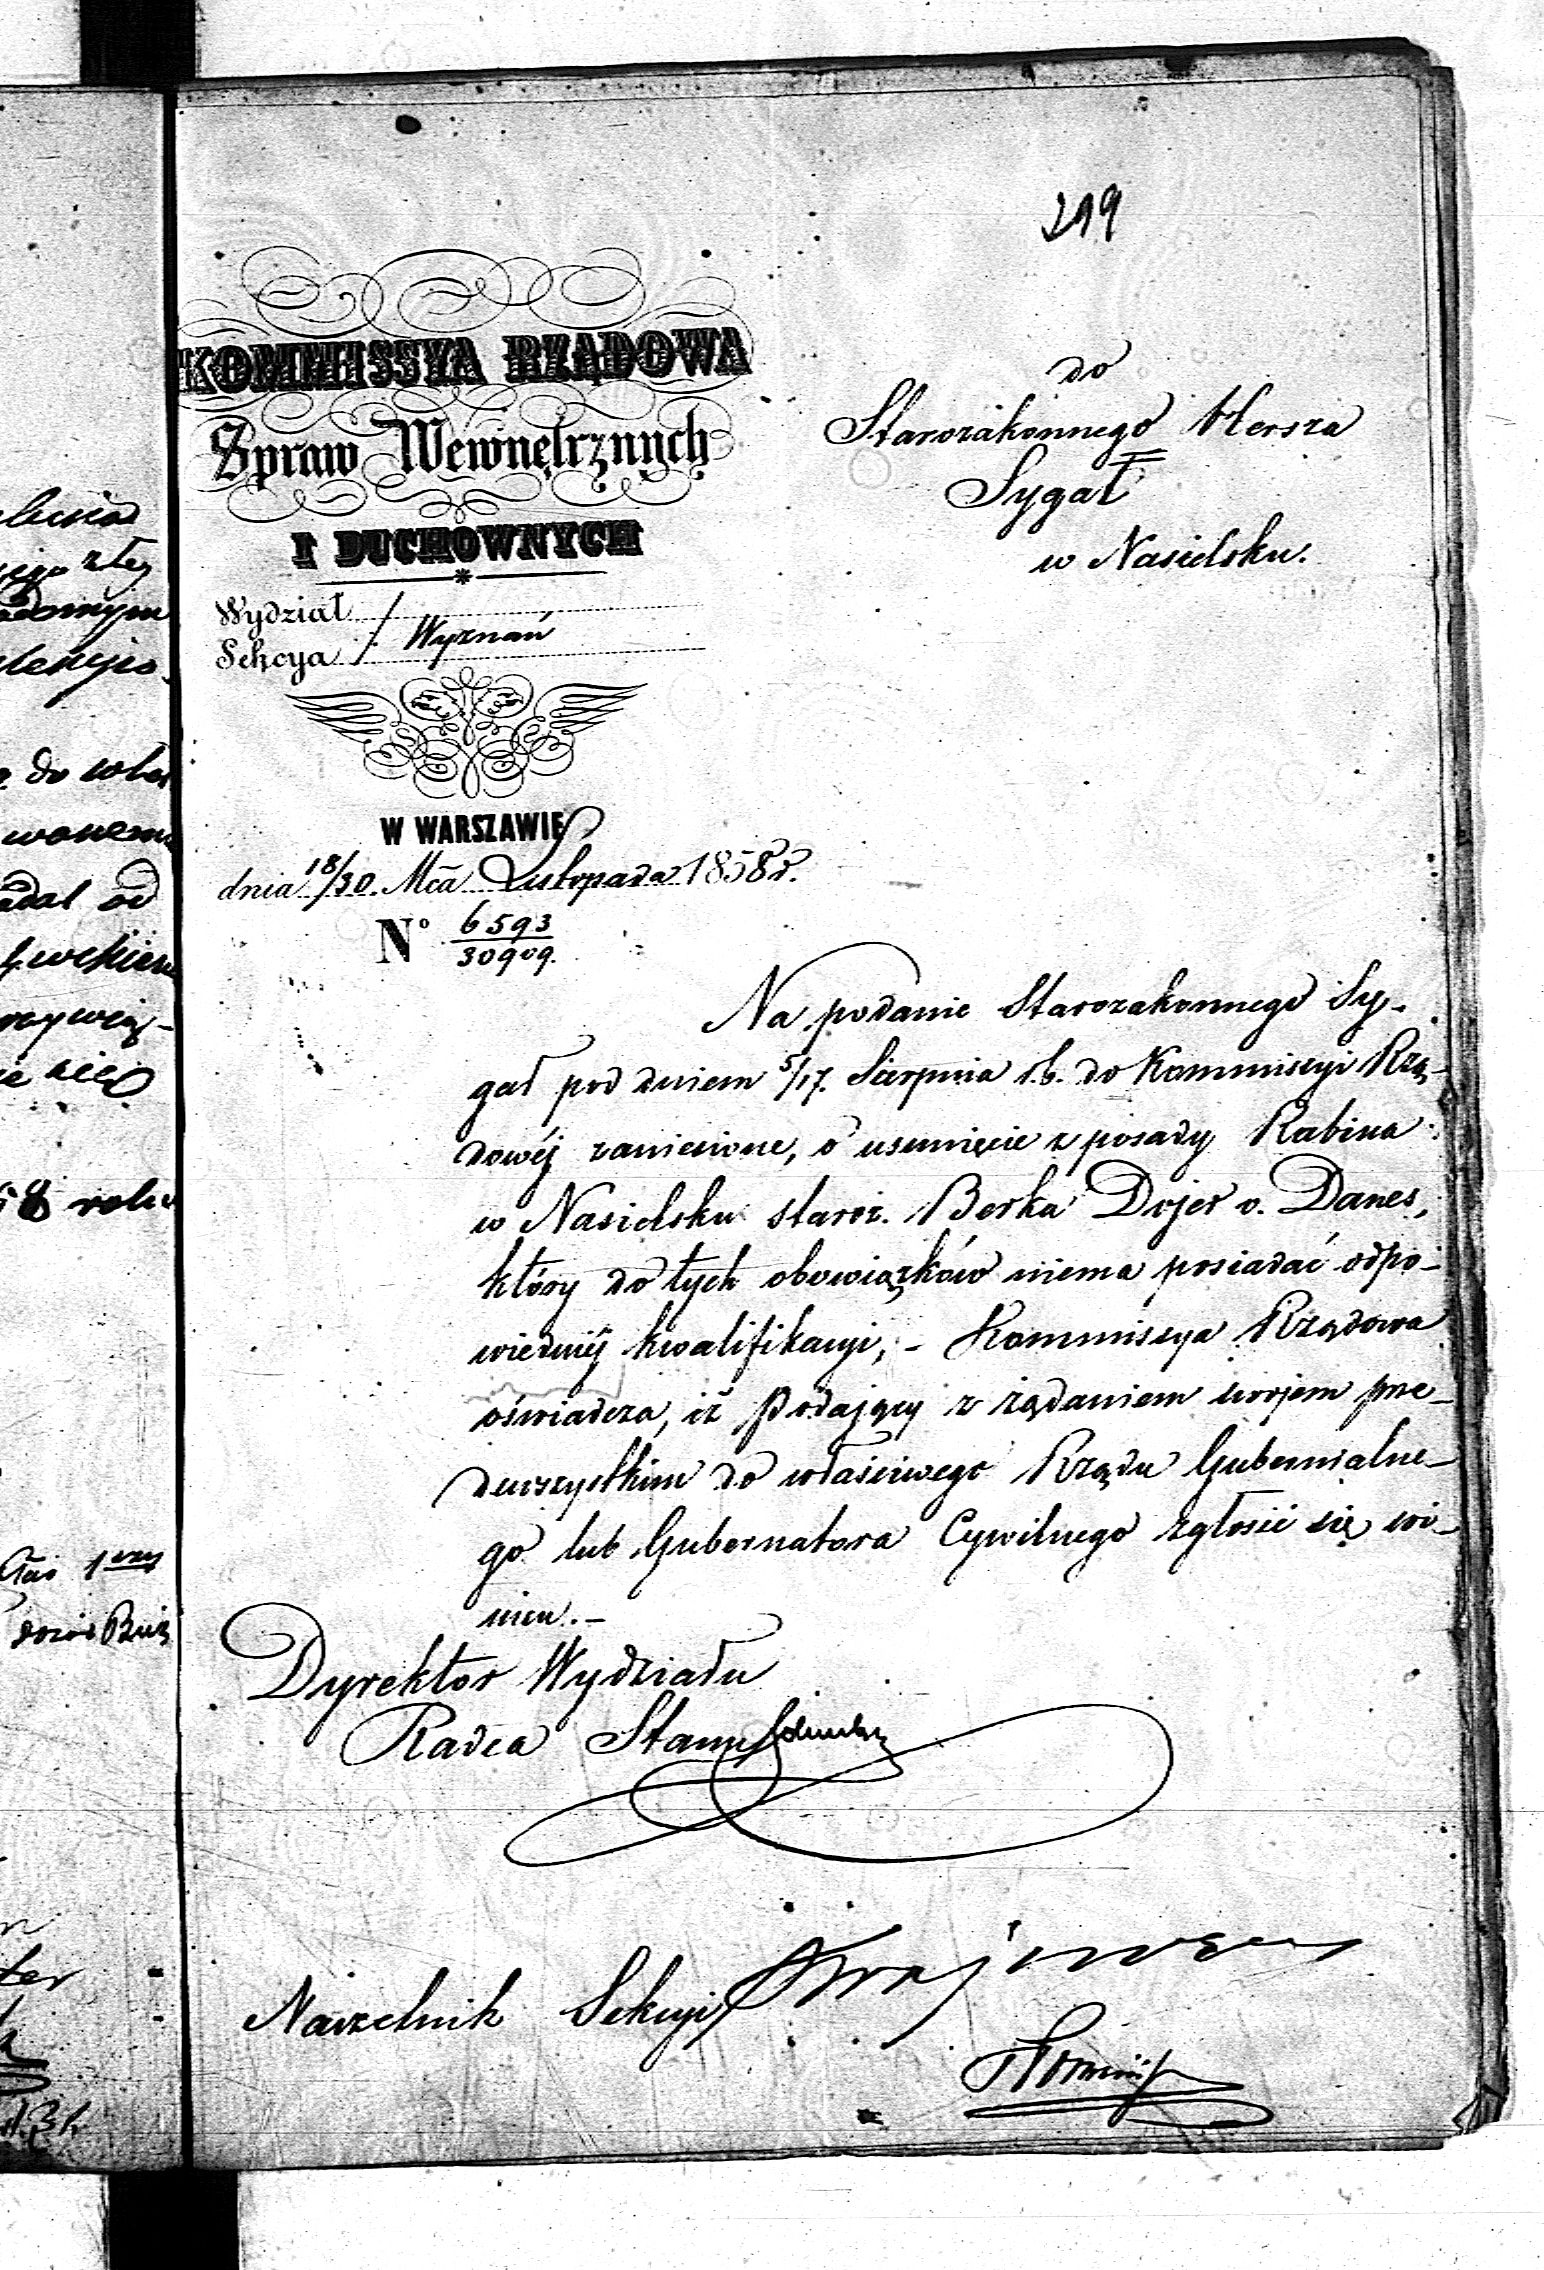 219
KOMMISSYA RZĄDOWA
Spraw Wewnętrznych
I DUCHOWNYCH
Wydział
Sekcya Wyznań
W WARSZAWIE
dnia 18/30. Mca Listopada 1858 r.
No 6593/30909.
do
Starozakonnego Hersza
Sygał
w Nasielsku.
Na podanie Starozakonnego Sy-
gał pod dniem 5/17. Sierpnia r.b. do Kommissyi Rzą-
dowéj zaniesione, o usunięcie z posady Rabina
w Nasielsku staroz. Berka Dojer v. Danes,
który do tych obowiązków niema posiadać odpo-
wiedniéj kwalifikacyi, - Kommissya Rządowa
oświadcza, iż Podający z żądaniem swojem prze-
dewszystkiem do właściwego Rządu Gubernialne-
go lub Gubernatora Cywilnego zgłosić się wi-
nien. -
Dyrektor Wydziału
Radca Stanu
Naczelnik Sekcyi
do
wanem
od
58 roku